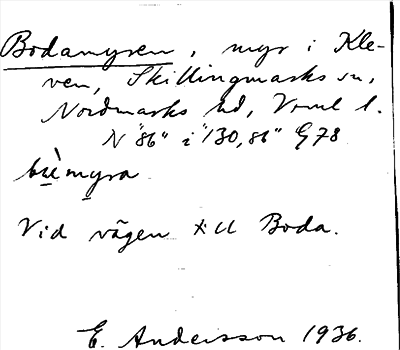 Bodamyren, myr i Kle-
ven, Skillingmarks sn,
Nordmarks hd, Värml l.
N "86" i "130,86" G78
bu̠ẁmyra
Vid vägen till Boda.
E. Andersson 1936.